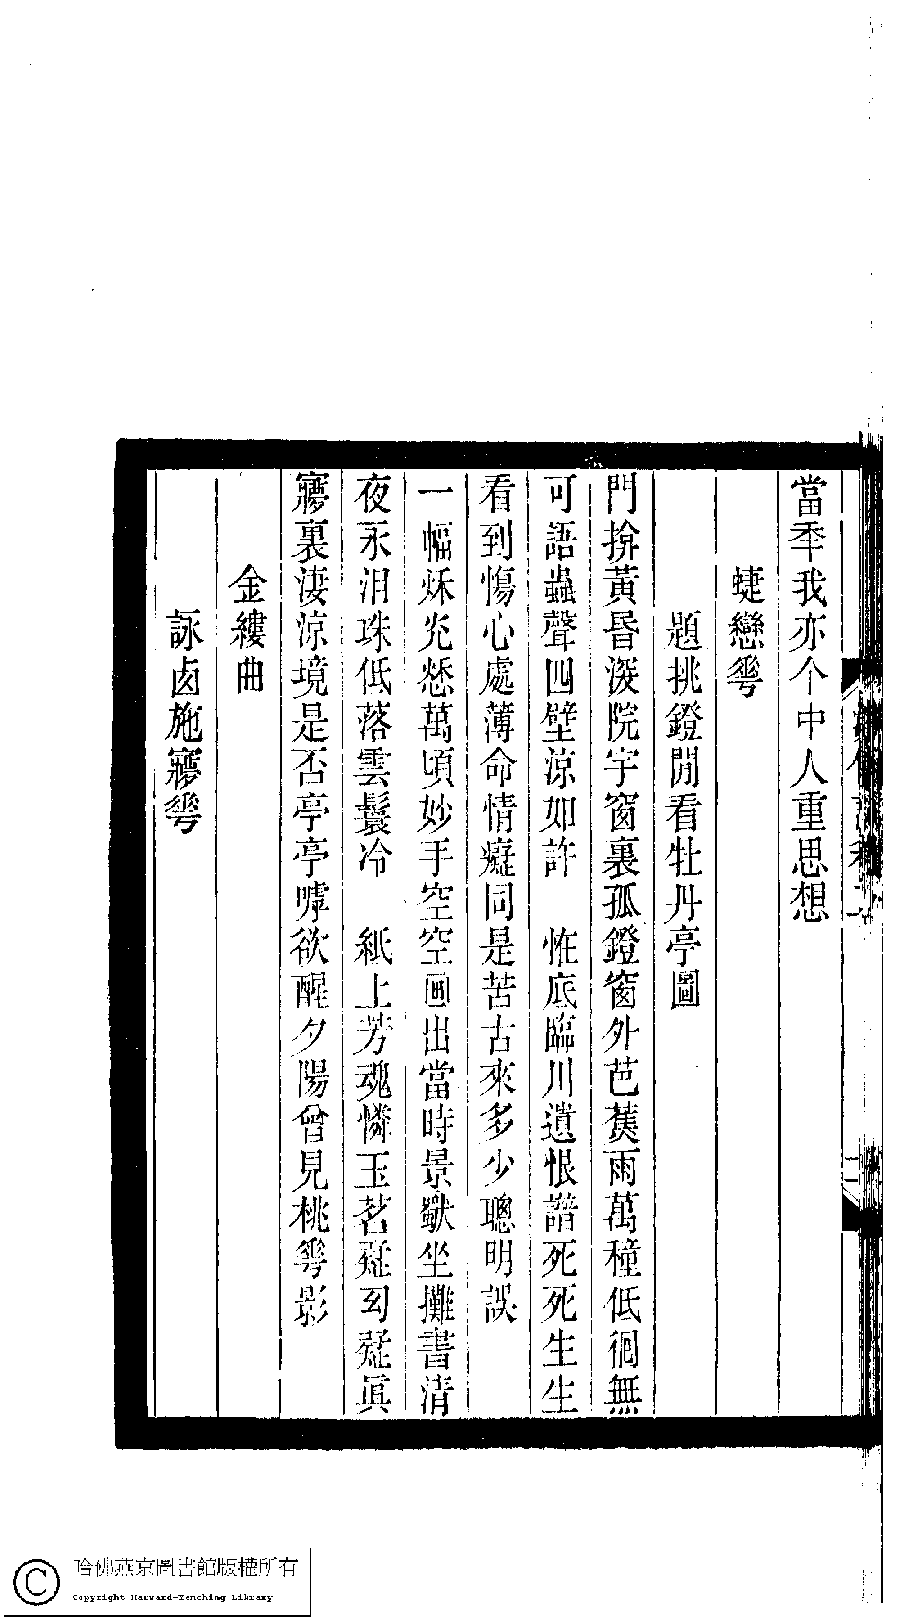 當秊我亦个中人重思想
蜨戀䔢
題挑鐙閒看牡丹亭圖
門揜黃昏深院宇窗裏孤鐙窗外芭蕉雨萬種低徊無
可語蟲聲四壁涼如許　恠底臨川遺恨譜死死生生
看到傷心處薄命情癡同是苦古來多少聰明誤
一幅秌光愁萬頃妙手空空画出當時景獨坐攤書清
夜永泪珠低落雲鬟冷　紙上芳魂憐玉茗疑幻疑眞
㝱裏淒涼境是否亭亭嘑欲醒夕陽曾見桃䔢影
金縷曲
詠卤施㝱䔢
哈佛燕京圖書館版權所有
Copyright Harvard-Yenching Library